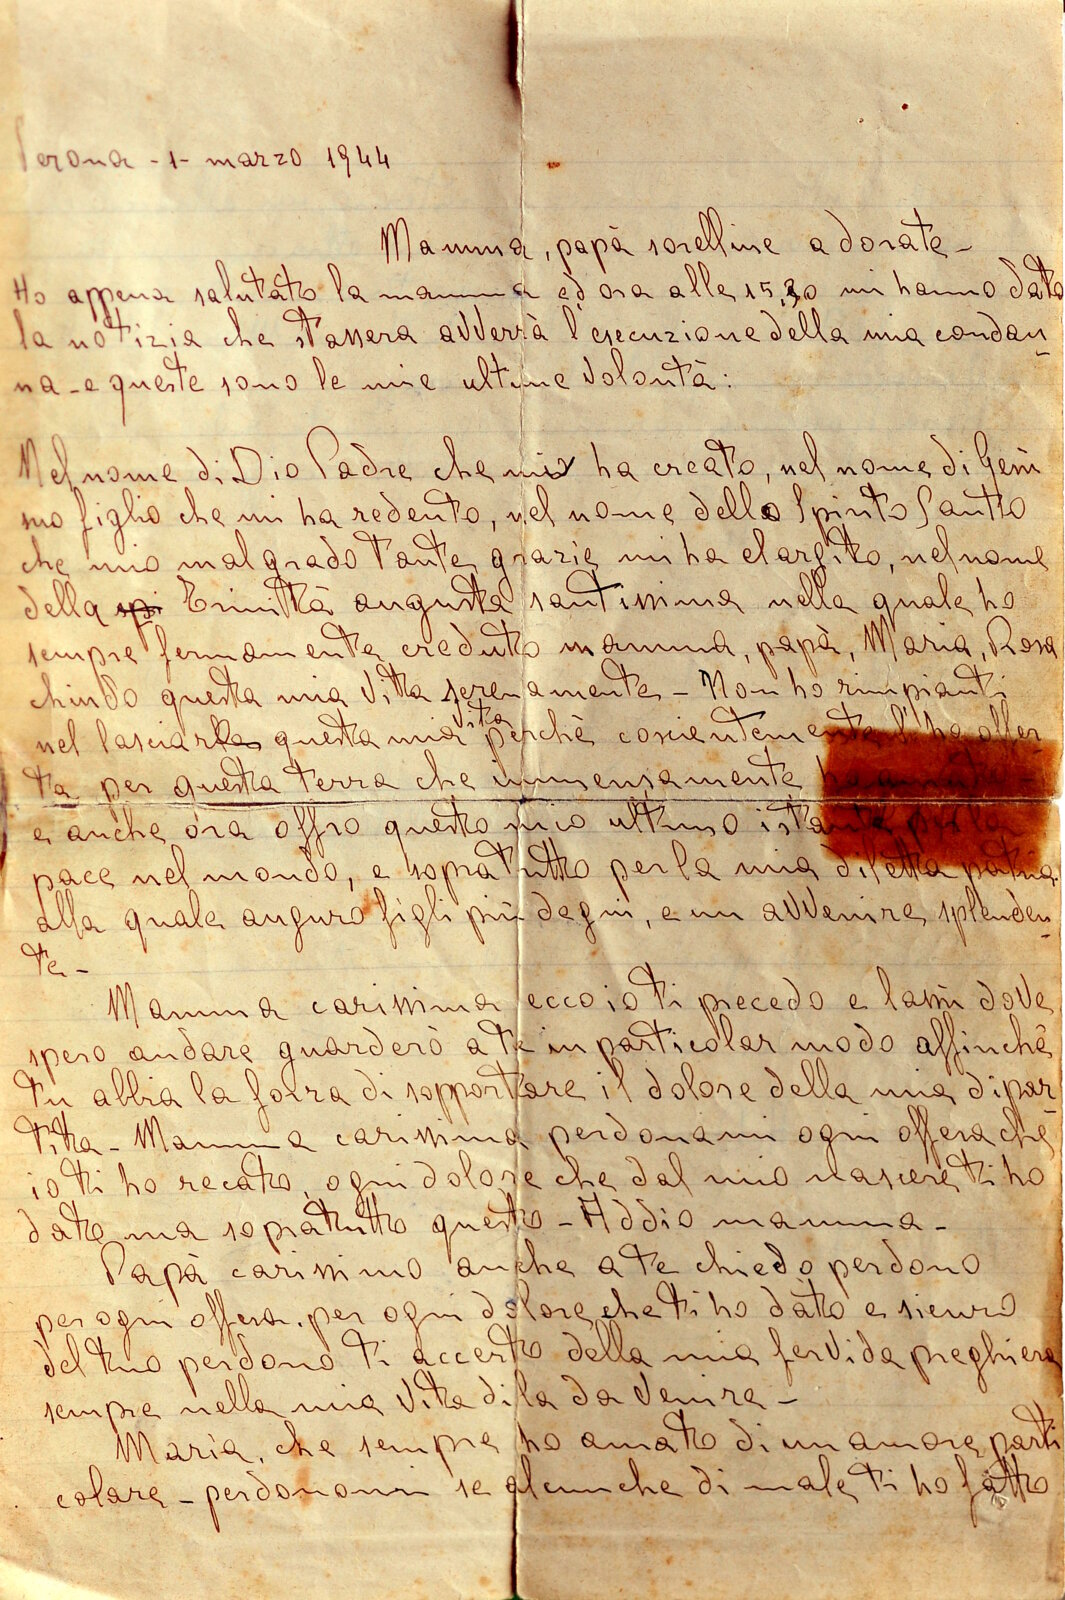 Verona - 1 - marzo 1944
Mamma, papà sorelline adorate -
Ho appena salutato la mamma ed ora alle 15,30 mi hanno dato
la notizia che stassera avverrà l'esecuzione della mia condan
na - e queste sono le mie ultime volontà:
Nel nome di Dio Padre che mi ha creato, nel nome di Gesù
suo figlio che mi ha redento, nel nome dello Spirito Santo
che mio malgrado tante grazie mi ha elargito, nel nome
della Trinità augusta santissima nella quale ho
sempre fermamente creduto mamma, papà, Maria, Rosa
chiudo questa mia vita serenamente - Non ho rimpianti
nel lasciare questa mia vita perchè coscientemente l'ho offer-
ta per questa terra che immensamente ho amato -
e anche ora offro questo mio ultimo istante per la
pace nel mondo, e sopratutto per la mia diletta patria
alla quale auguro figli più degni, e un avvenire splenden
te -
Mamma carissima ecco io ti precedo e lassù dove
spero andare guarderò a te in particolar modo affinchè
tu abbia la forza di sopportare il dolore della mia dipar
tita - Mamma carissima perdonami ogni offesa che
io ti ho recato, ogni dolore che dal mio nascere ti ho
dato ma sopratutto questo - Addio mamma -
Papà carissimo anche a te chiedo perdono
per ogni offesa, per ogni dolore che ti ho dato e sicuro
del tuo perdono ti accerto della mia fervida preghiera
sempre nella mia vita di la da venire -
Maria, che sempre ho amato di un amore parti
colare - perdonami se alcunche di male ti ho fatto